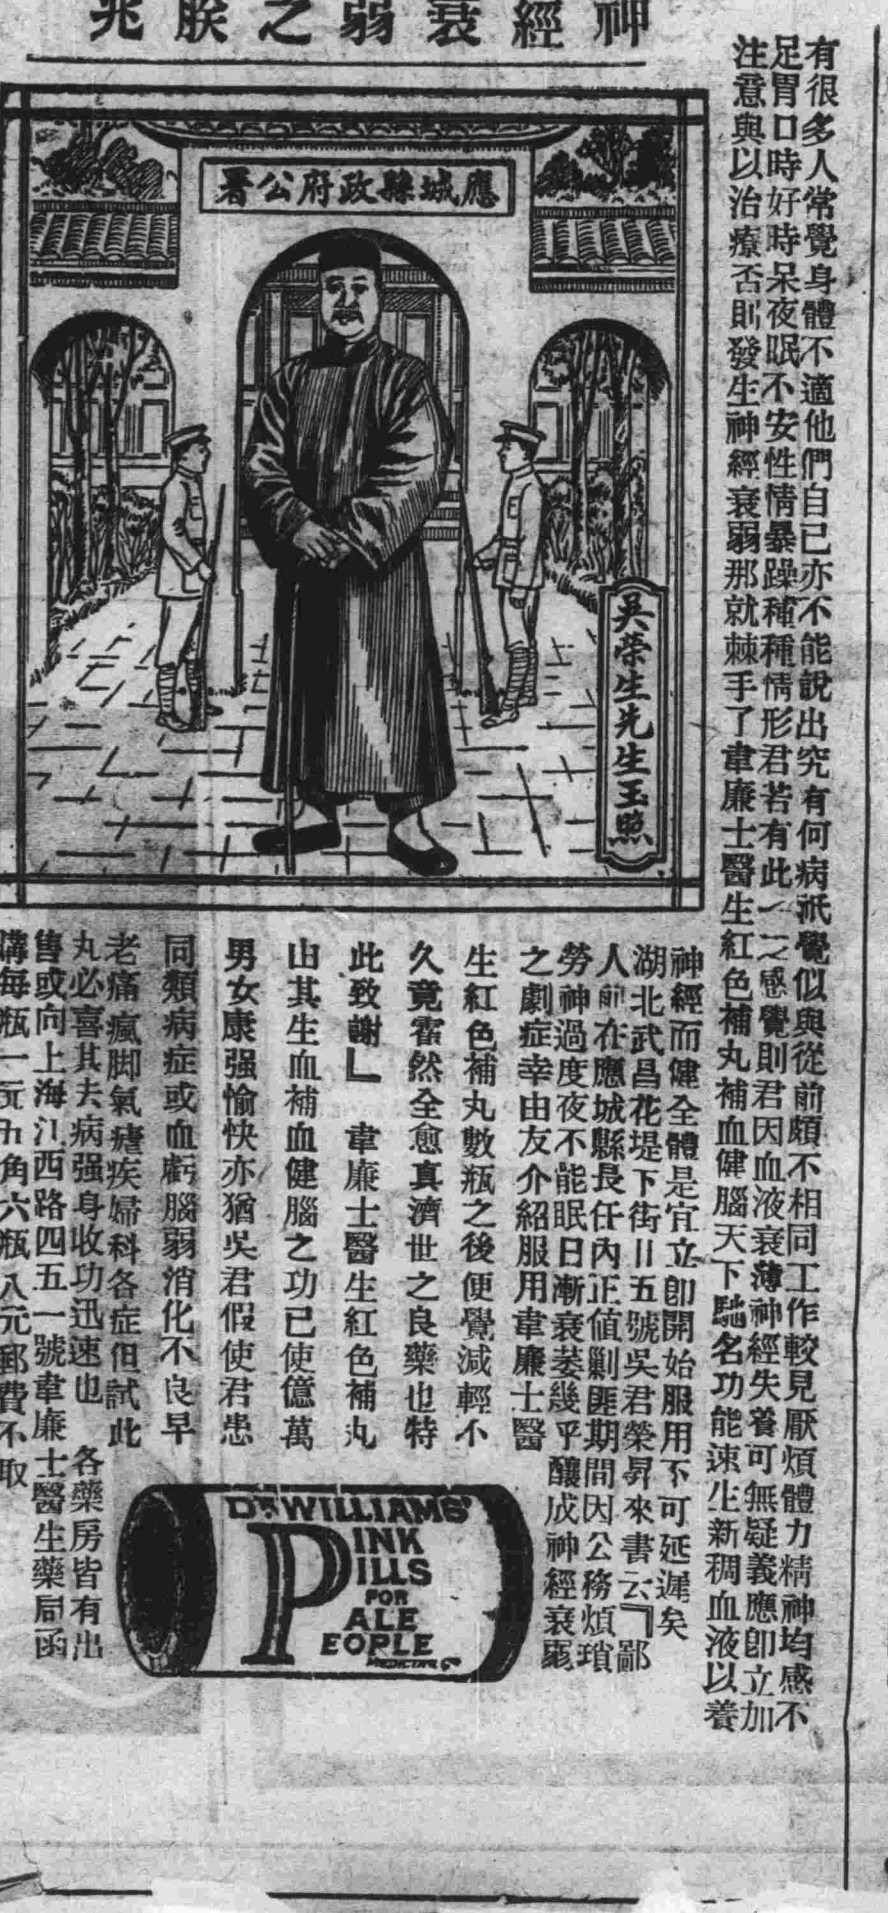 神經衰弱之朕兆
有很多人常覺身體不適他們自已亦不能說出究有何病祇覺似與從前頗不相同工作較見厭煩體力精神均感不
足胃口時好時呆夜眠不安性情暴躁種種情形君若有此一二感覺則君因血液衰薄神經失養可無疑義應卽立加
注意與以治療否則發生神經衰弱那就棘手了韋廉士醫生紅色補丸補血健腦天下馳名功能速生新稠血液以養
應城縣政府公署
吳榮生先生玉照
神經而健全體是宜立卽開始服用不可延遲矣
湖北武昌花堤下街川五號吳君榮昇來書云『鄙
人前在應城縣長任內正值剿匪期間因公務煩瑣
勞神過度夜不能眠日漸衰萎幾乎釀成神經衰弱
之劇症幸由友介紹服用韋廉士醫
生紅色補丸數瓶之後便覺減輕不
久竟霍然全愈真濟世之良藥也特
此致謝』 韋廉士醫生紅色補丸
由其生血補血健腦之功已使億萬
男女康强愉快亦猶吳君假使君患
同類病症或血虧腦弱消化不良早
老痛瘋脚氣瘧疾婦科各症但試此
丸必喜其去病强身收功迅速也 各藥房皆有出
售或向上海江西路四五一號韋廉士醫生藥局函
購每瓶一元五角六瓶八元郵費不取
DR WILLIAMS'
PINK
PILLS
FOR
PALE
PEOPLE
MEDICINE Co